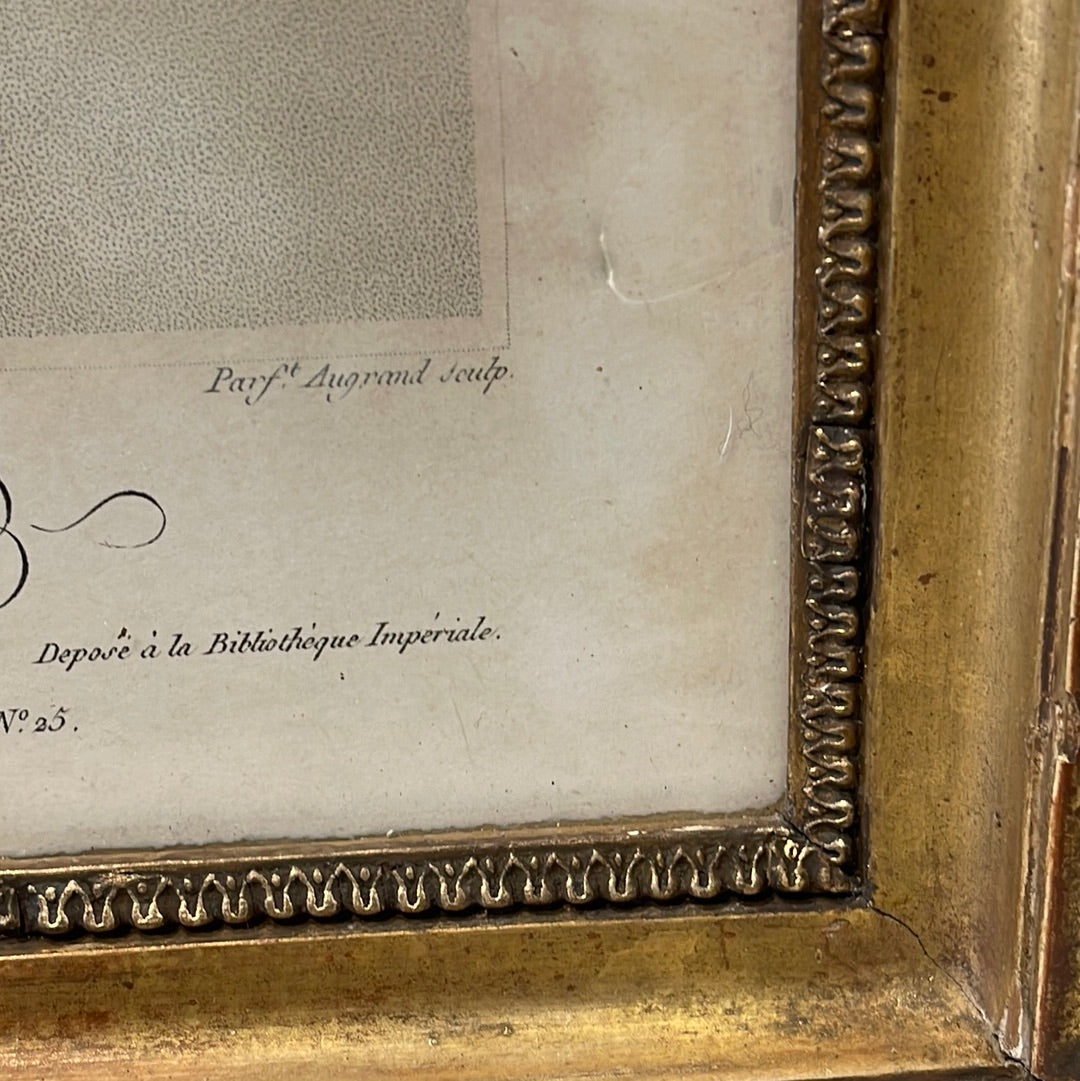 Parf.t Augrand Sculp.
Deposé à la Bibliothèque Impériale.
No. 25.